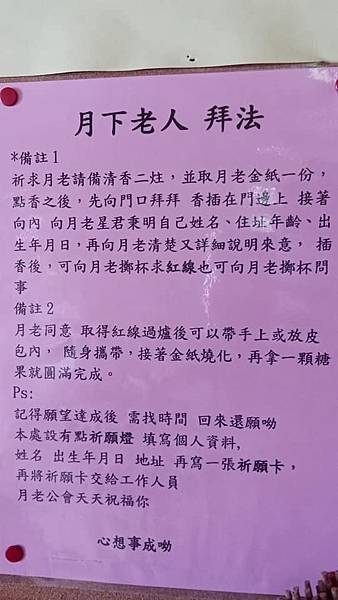 月下老人 拜法
*備註1
祈求月老請備清香二炷，並取月老金紙一份，
點香之後，先向門口拜拜 香插在門邊上 接著
向內 向月老星君秉明自己姓名、住址年齡、出
生年月日，再向月老清楚又詳細說明來意， 插
香後，可向月老擲杯求紅線也可向月老擲杯問
事
備註2
月老同意 取得紅線過爐後可以帶手上或放皮
包內， 隨身攜帶，接著金紙燒化，再拿一顆糖
果就圓滿完成。
Ps:
記得願望達成後 需找時間 回來還願呦
本處設有點祈願燈 填寫個人資料,
姓名 出生年月日 地址 再寫一張祈願卡，
再將祈願卡交給工作人員
月老公會天天祝福你
心想事成呦